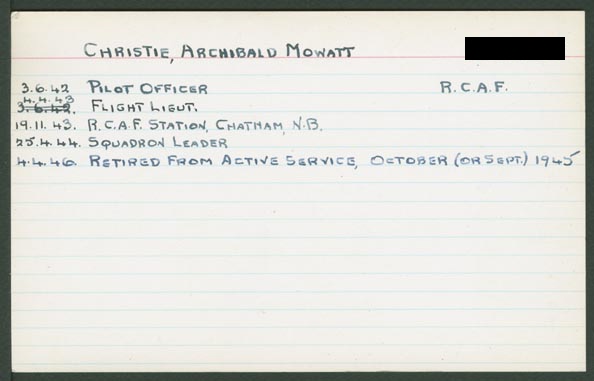 CHRISTIE, ARCHIBALD MOWATT
3.6.42 PILOT OFFICER R.C.A.F.
4.4.43
3.6.42. FLIGHT LIEUT.
19.11.43. R.C.A.F. STATION, CHATHAM, N.B.
25.4.44. SQUADRON LEADER
4.4.46. RETIRED FROM ACTIVE SERVICE, OCTOBER (OR SEPT.) 1945